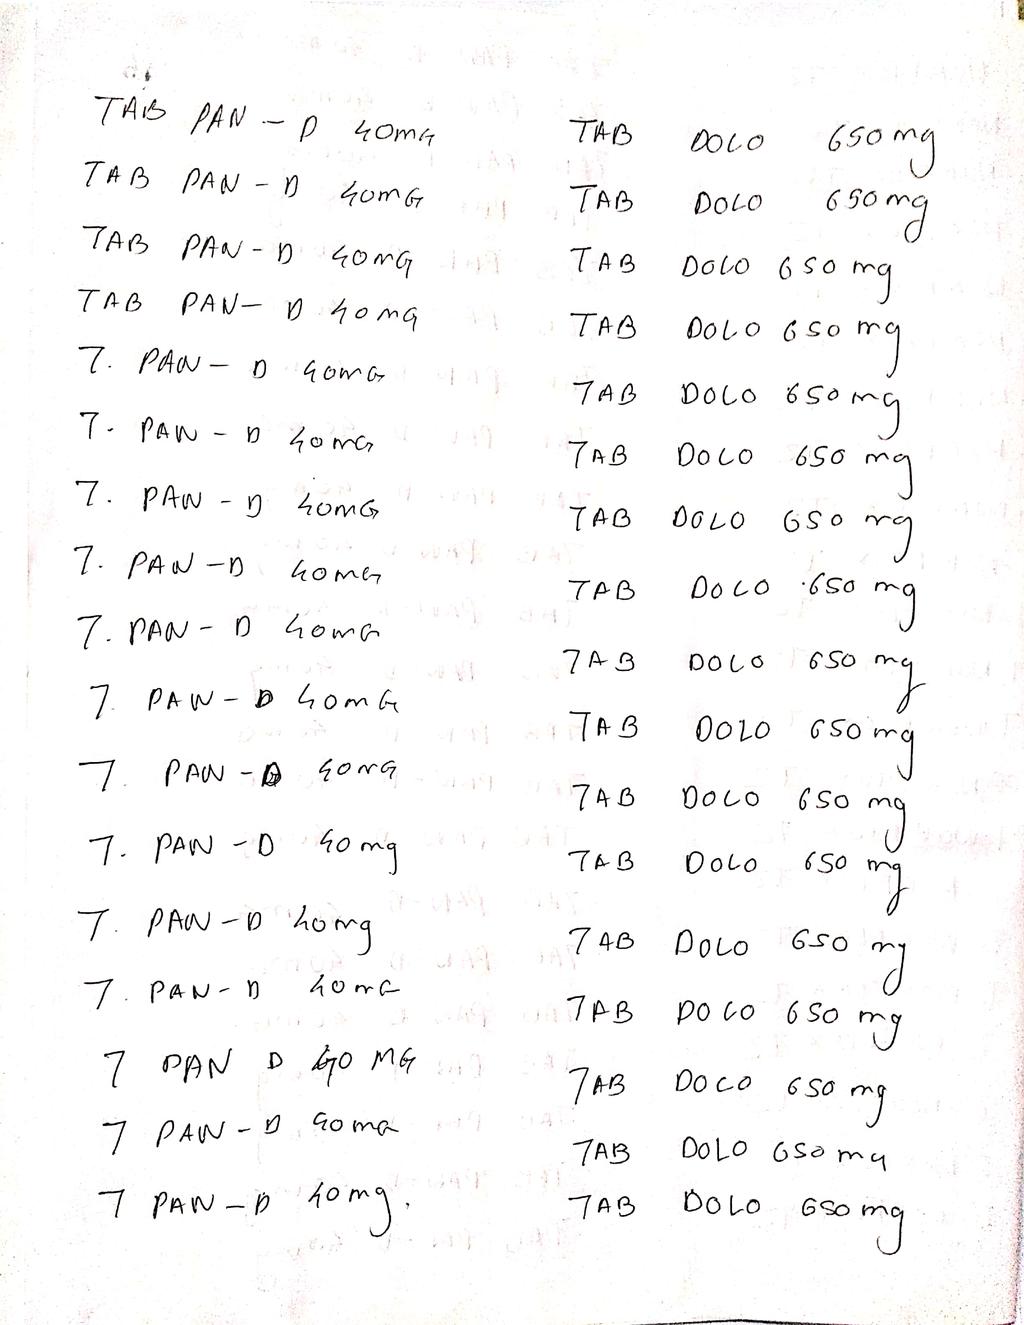 TAB PAN - D 40MG
TAB PAN - D 40MG
TAB PAN - D 40MG
TAB PAN - D 40MG
T. PAN - D 40MG
T. PAN - D 40MG
T. PAN - D 40MG
T. PAN - D 40MG
T. PAN - D 40MG
T. PAN - D 40MG
T. PAN - D 40MG
T. PAN - D 40 mg
T. PAN - D 40mg
T. PAN - D 40MG
T PAN D 40 MG
T PAN - D 40MG
T PAN - D 40mg.
TAB DOLO 650mg
TAB DOLO 650mg
TAB DOLO 650 mg
TAB DOLO 650 mg
TAB DOLO 650 mg
TAB DOLO 650 mg
TAB DOLO 650 mg
TAB DOLO 650 mg
TAB DOLO 650 mg
TAB DOLO 650 mg
TAB DOLO 650 mg
TAB DOLO 650 mg
TAB DOLO 650 mg
TAB DOLO 650 mg
TAB DOLO 650 mg
TAB DOLO 650 mg
TAB DOLO 650 mg